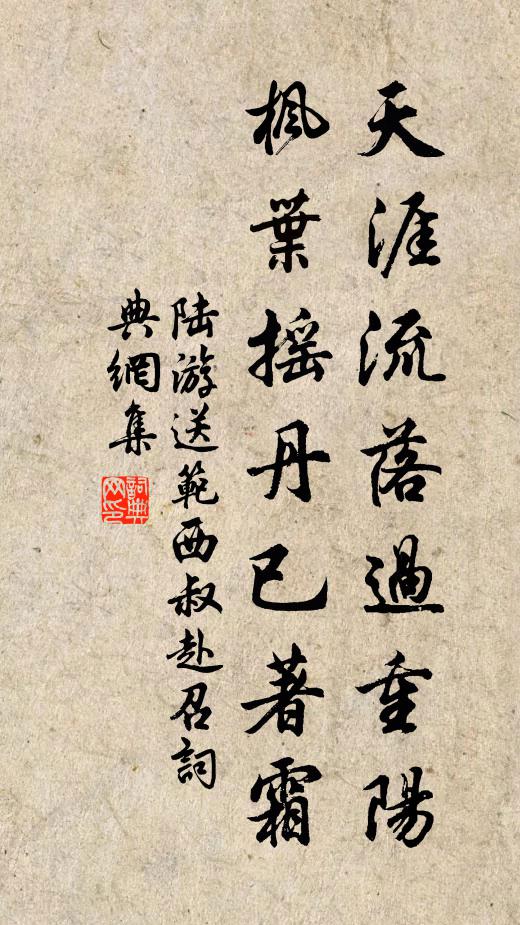 天涯流落過重陽
楓葉摇丹已著霜
陆游送範西叔赴召詞
典網集
詞典
网印